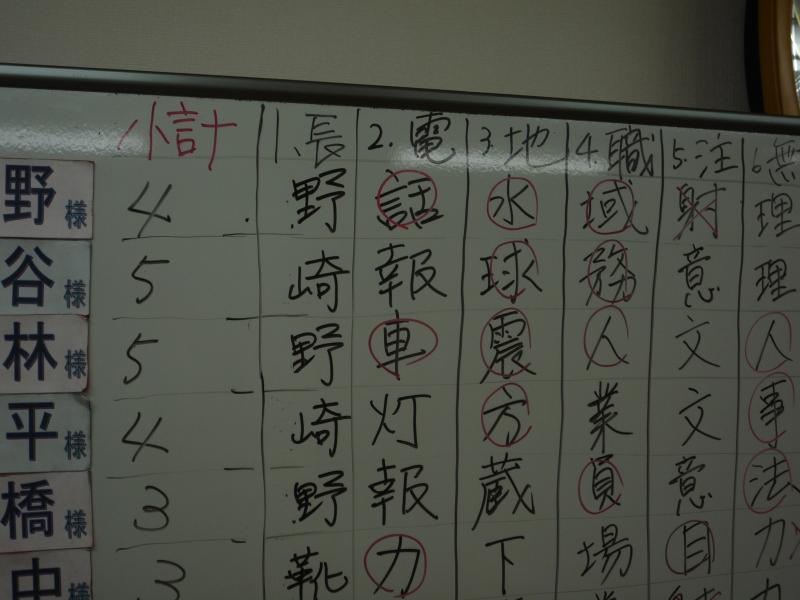 小計 1.長 2.電 3.地 4.職 5.注 6.無
野様 4 野 話 水 域 射 理
谷様 5 崎 報 球 務 意 理
林様 5 野 車 震 人 文 人
平様 4 崎 灯 方 業 文 事
橋様 3 野 報 蔵 員 意 法
中様 3 靴 力 下 場 目 力